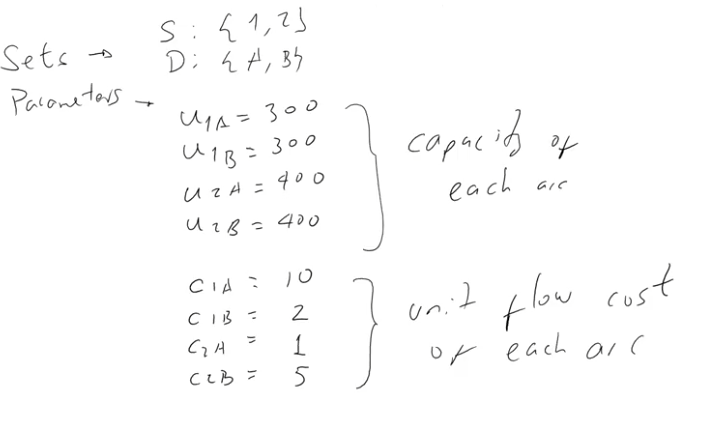 Sets → S: {1,2}
D: {A,B}
Parameters →
U1A = 300
U1B = 300
U2A = 400
U2B = 400
capacity of
each arc
C1A = 10
C1B = 2
C2A = 1
C2B = 5
unit flow cost
of each arc